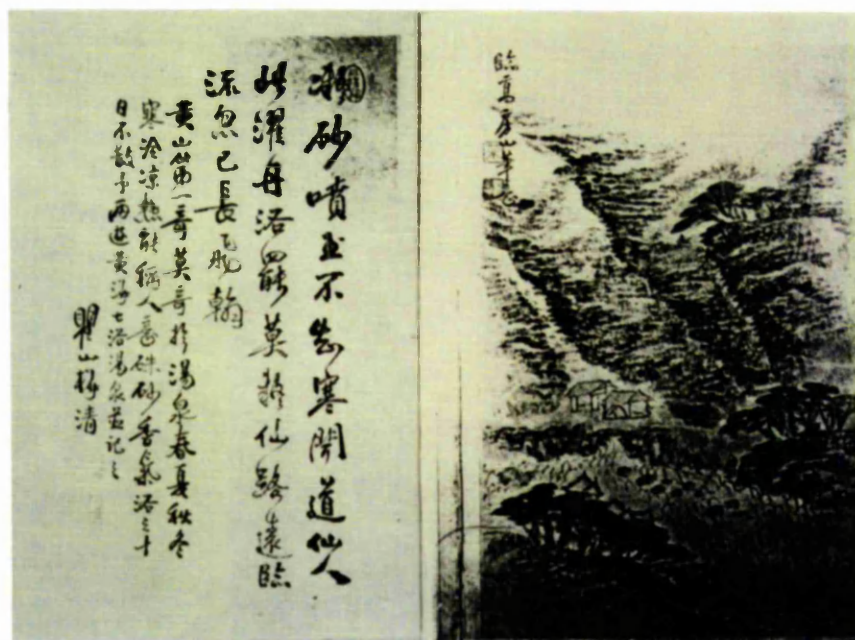 臨高房山筆意
砂噴玉不知寒聞道仙人
此濯丹浴罷莫辭仙路遠臨
流忽已長飛翰
黃山第一奇莫奇於湯泉春夏秋冬
寒冷涼熱能稱人意硃砂香氣浴之十
日不散予兩遊黃海七浴湯泉並記之
瞿山梅清